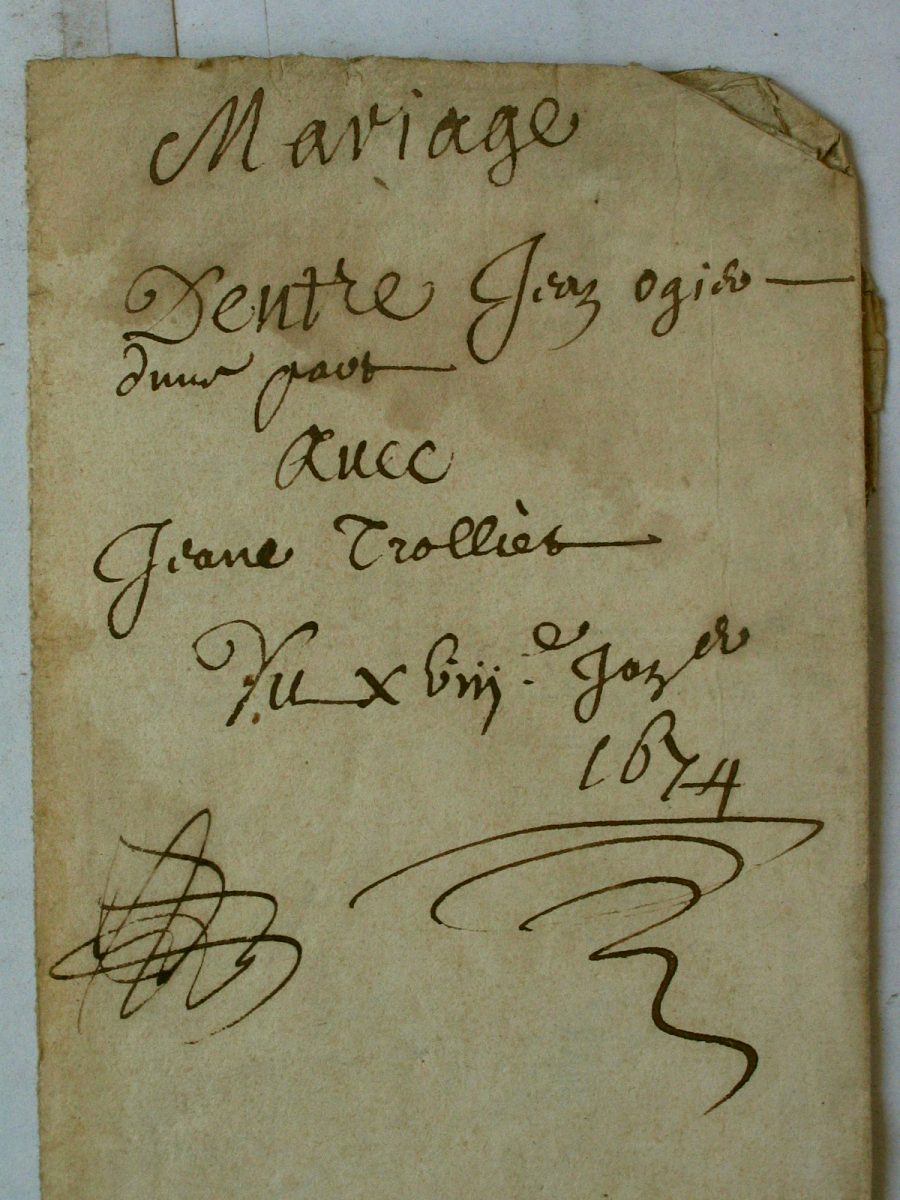 Mariage
Dentre Jean ogier
dune part
Auec
Jeane Trolliet
Du xviij.e Janer
1674